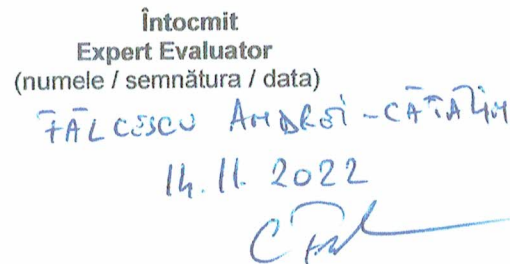 Întocmit
Expert Evaluator
(numele / semnătura / data)
FĂLCESCU ANDREI - CĂTĂLIN
14.11.2022